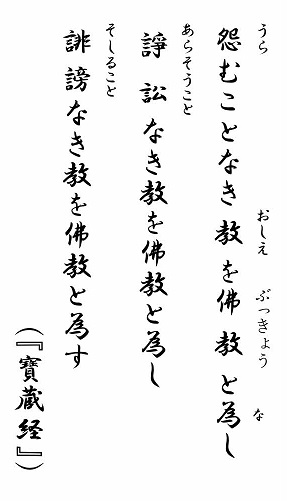 怨むことなき教を佛教と為し
うら おしえ ぶっきょう な
諍訟なき教を佛教と為し
あらそうこと
誹謗なき教を佛教と為す
そしること
(『寶蔵経』)